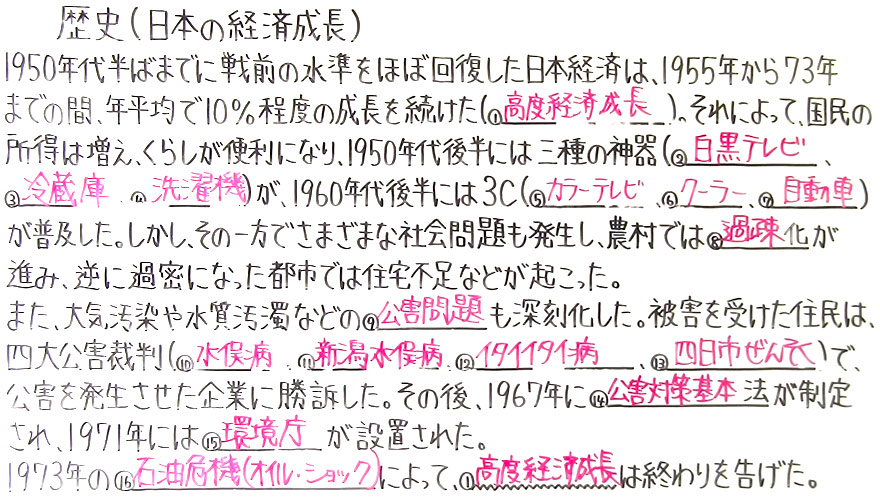 歴史(日本の経済成長)
1950年代半ばまでに戦前の水準をほぼ回復した日本経済は、1955年から73年
までの間、年平均で10%程度の成長を続けた(①高度経済成長)。それによって、国民の
所得は増え、くらしが便利になり、1950年代後半には三種の神器(②白黒テレビ、
③冷蔵庫、④洗濯機)が、1960年代後半には3C(⑤カラーテレビ、⑥クーラー、⑦自動車)
が普及した。しかし、その一方でさまざまな社会問題も発生し、農村では⑧過疎化が
進み、逆に過密になった都市では住宅不足などが起こった。
また、大気汚染や水質汚濁などの⑨公害問題も深刻化した。被害を受けた住民は、
四大公害裁判(⑩水俣病、⑪新潟水俣病、⑫イタイイタイ病、⑬四日市ぜんそく)で、
公害を発生させた企業に勝訴した。その後、1967年に⑭公害対策基本法が制定
され、1971年には⑮環境庁が設置された。
1973年の⑯石油危機(オイル・ショック)によって、①高度経済成長は終わりを告げた。